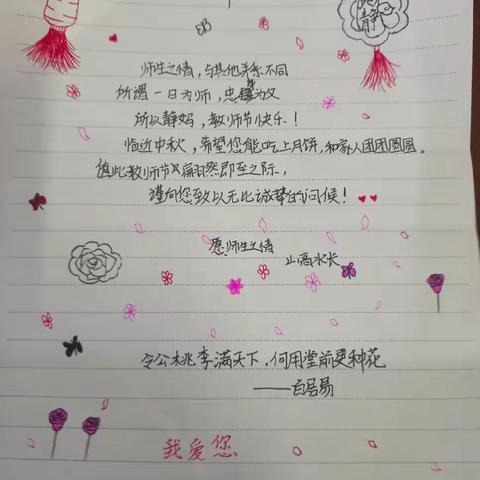 静
师生之情，与其他关系不同
所谓一日为师，忠镇为父
所以静妈，教师节快乐！
临近中秋，希望您能吃上月饼，和家人团团圆圆。
值此教师节翩然即至之际，
谨向您致以无比诚挚的问候！
愿师生之情
山高水长
令公桃李满天下，何用堂前更种花
——白居易
我爱您